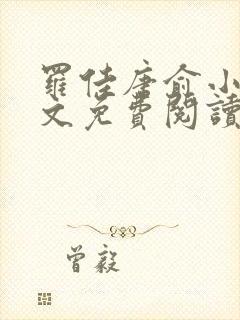 羅佳唐俞小
文免費閱讀
曾毅